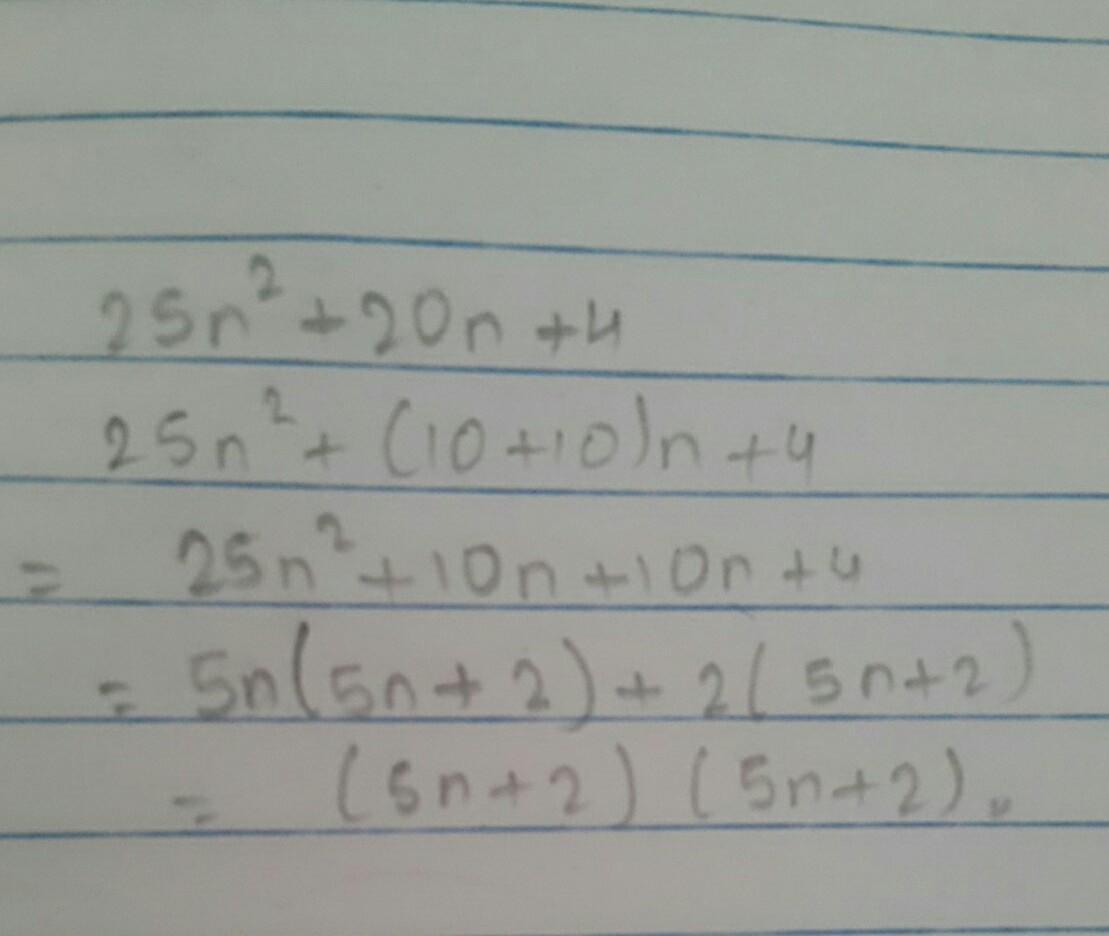 25n² + 20n + 4
25n² + (10+10)n + 4
= 25n² + 10n + 10n + 4
= 5n(5n + 2) + 2(5n+2)
= (5n+2) (5n+2).